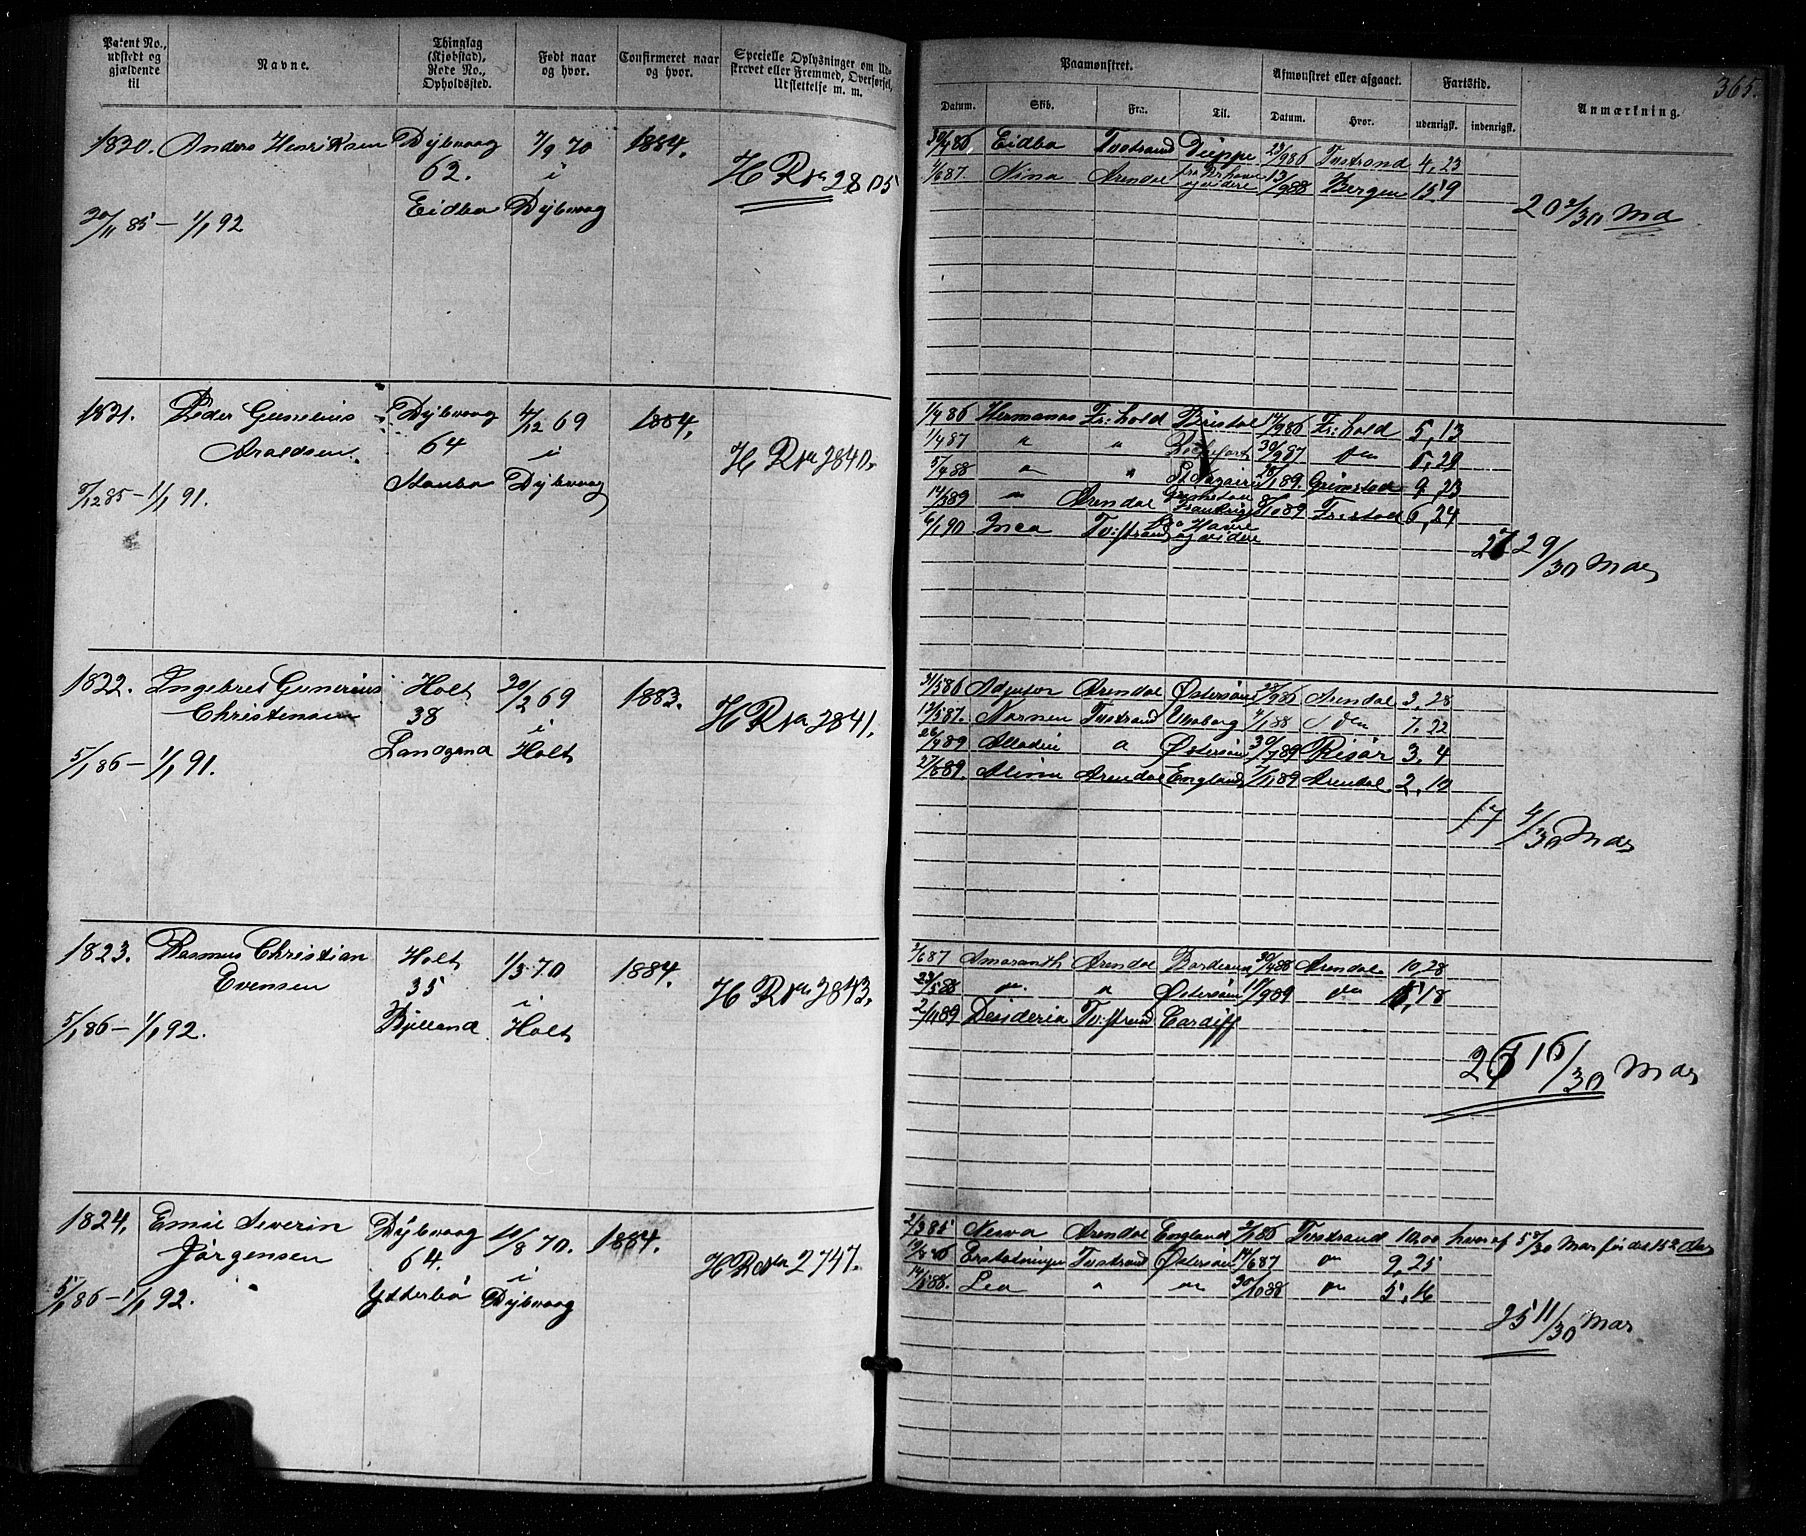 Patent No., udstedt og gjældende til
Navne.
Thinglag (Kjøbstad), Rode No., Opholdssted.
Født naar og hvor.
Confirmeret naar og hvor.
Specielle Oplysninger om Ud-skrevet eller Fremmed, Overførsel, Udslettelse m. m.
Paamønstret.
Afmønstret eller afgaaet.
Fartstid.
Anmærkning.
365.
Datum. Skib. Fra. Til. Datum. Hvor. udenrigst. indenrigst.
1820. Anders Henriksen Dybvaag 7/9 70 1884.
62. i H R No 2805
Eidbo Dybvaag
20/11 85 – 1/1 92
30/4 86 Eidbo Tvstrand Dieppe 23/9 86 Tvstrand 4, 23
1/6 87. Nina Arendal og videre 13/9 88 Bergen 15 9
20 2/30 Md
1821. Peder Gunelius Dybvaag 4/12 69 1884.
Araldsen. 64 i H R No 2840.
Stoubo Dybvaag
8/12 85 – 1/1 91.
1/4 86 Hermanos Fr:hald Bristol 17/9 86 Fr:hald 5, 13
1/4 87 " " Rochefort 30/9 87 do 5, 29
5/4 88 " " St Nazaire 28/1 89. Grimstad 9, 23
14/3 89 " Arendal Frankrige 8/10 89 Fr:stad 6, 24
6/1 90 Inca Tv:strand Havre og videre
27 29/30 Mdr
1822. Ingebret Gunerius Holt 20/2 69 1883.
Christensen 38 i H R No 2841.
Landgend Holt
5/1 86 – 1/1 91.
31/5 86 Adjutor Arendal Østersøen 28/9 86 Arendal 3, 28
12/5 87. Nornen Tvstrand 4/1 88 do 7, 22
26/4 89 Alladin " Østersøen 30/7 89 Risør 3, 4
27/8 89. Alivia Arendal England 7/11 89 Arendal 2, 10
17 4/30 Mdr
1823. Rasmus Christian Holt 1/3 70 1884.
Evensen 35 i H R No 2843.
Bjelland Holt
5/1 86 – 1/1 92.
2/6 87 Amaranth Arendal 30/4 88 Arendal 10, 28
23/5 88 do " Østersøen 11/9 89 do 18
2/11 89 Desideria Tv:strand Cardiff
26 16/30 Mdr
1824. Emil Severin Dybvaag 10/8 70. 1884.
Jørgensen 64. i H R No 2747.
Ytterbø Dybvaag
5/1 86 – 1/1 92.
2/3 85 Nerva Arendal England 2/1 86 Tvstrand 10,00 heraf 5 Mdr
Tvstrand Østersøen 14/6 87 do 9, 25
14/5 88. Leo " do 30/10 88 do 5, 16
25 11/30 Mdr